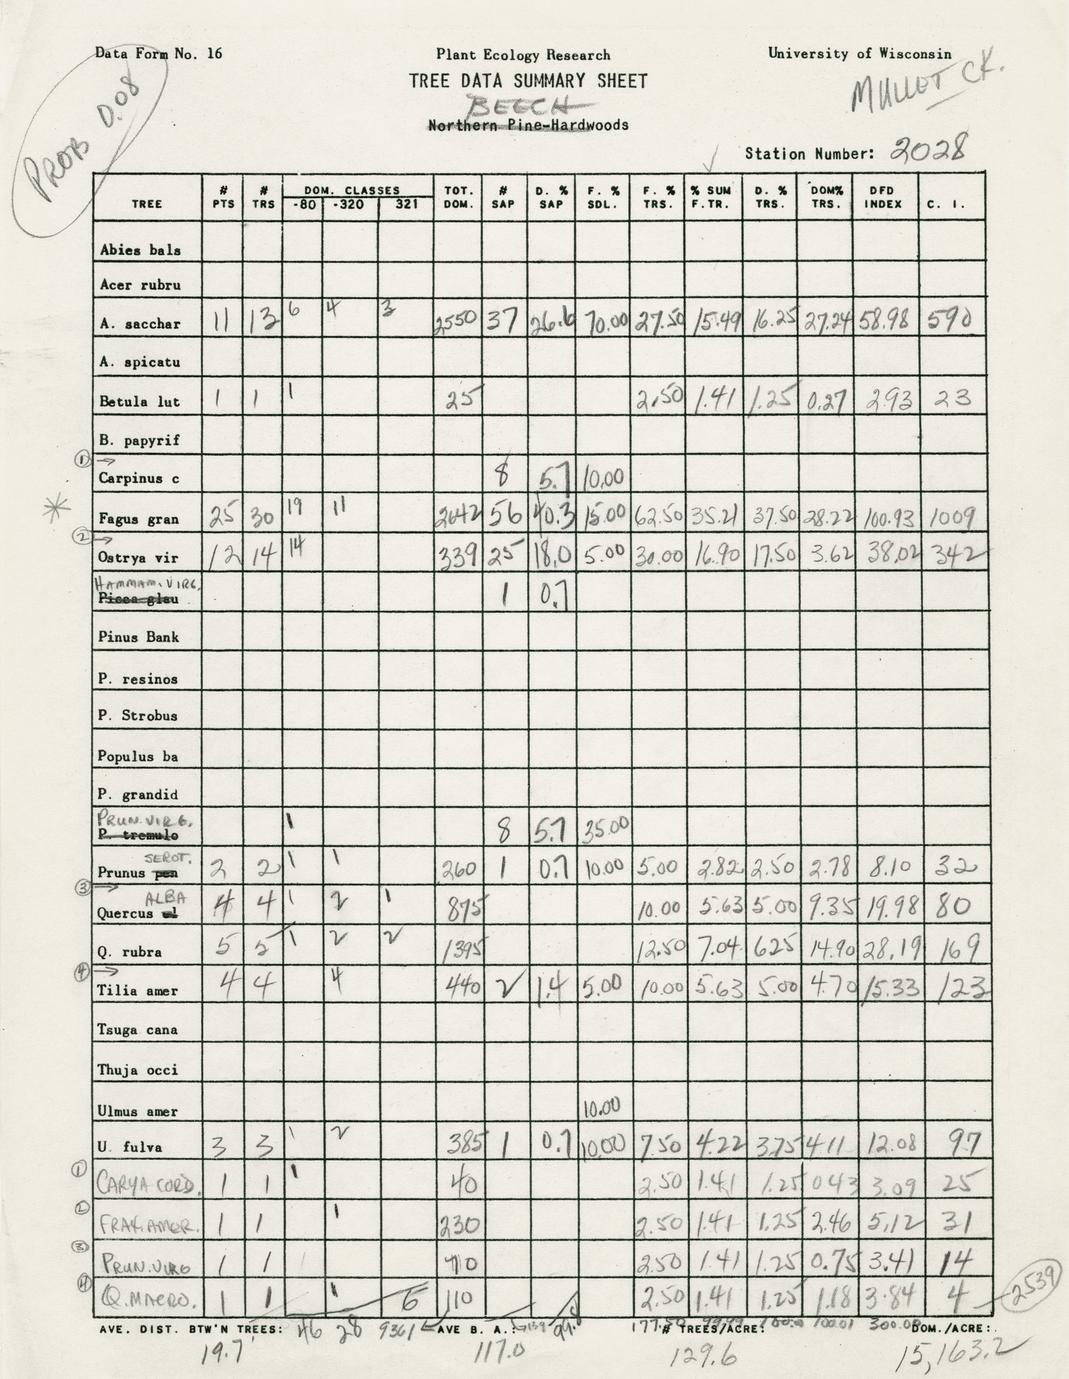 Data Form No. 16 Plant Ecology Research University of Wisconsin
TREE DATA SUMMARY SHEET
PROB 0.08
MULLET CK.
BEECH
Northern Pine-Hardwoods
Station Number: 2028
TREE # PTS # TRS DOM. CLASSES -80 -320 321 TOT. DOM. # SAP D. % SAP F. % SDL. F. % TRS. % SUM F.TR. D. % TRS. DOM% TRS. DFD INDEX C. I.
Abies bals
Acer rubru
A. sacchar 11 13 6 4 3 2550 37 26.6 70.00 27.50 15.49 16.25 27.24 58.98 590
A. spicatu
Betula lut 1 1 1 25 2.50 1.41 1.25 0.27 2.93 23
B. papyrif
① →
Carpinus c 8 5.7 10.00
* Fagus gran 25 30 19 11 2642 56 40.3 15.00 62.50 35.21 37.50 28.22 100.93 1009
② →
Ostrya vir 12 14 14 339 25 18.0 5.00 30.00 16.90 17.50 3.62 38.02 342
HAMMAM. VIRG.
Picea glau 1 0.7
Pinus Bank
P. resinos
P. Strobus
Populus ba
P. grandid
PRUN. VIRG.
P. tremulo 1 8 5.7 35.00
SEROT.
Prunus pen 2 2 1 1 260 1 0.7 10.00 5.00 2.82 2.50 2.78 8.10 32
③ →
ALBA
Quercus al 4 4 1 2 1 875 10.00 5.63 5.00 9.35 19.98 80
Q. rubra 5 5 1 2 2 1395 12.50 7.04 6.25 14.90 28.19 169
④ →
Tilia amer 4 4 4 440 2 1.4 5.00 10.00 5.63 5.00 4.70 15.33 123
Tsuga cana
Thuja occi
Ulmus amer 10.00
U. fulva 3 3 1 2 385 1 0.7 10.00 7.50 4.22 3.75 4.11 12.08 97
① CARYA CORD. 1 1 1 40 2.50 1.41 1.25 0.43 3.09 25
② FRAX. AMER. 1 1 1 230 2.50 1.41 1.25 2.46 5.12 31
③ PRUN. VIRG 1 1 1 70 2.50 1.41 1.25 0.75 3.41 14
④ Q. MACRO. 1 1 1 6 110 2.50 1.41 1.25 1.18 3.84 4 2539
AVE. DIST. BTW'N TREES: 46 28 9361 AVE B. A.: 139 99.8 177.50 # TREES/ACRE: 99.99 100.0 100.01 300.00 DOM./ACRE:
19.7 117.0 129.6 15,163.2